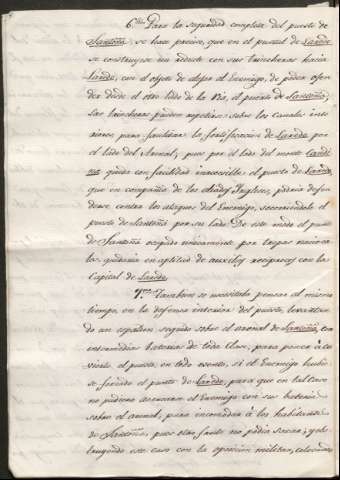 6.ᵗᵒ Para la seguridad completa del puerto de
Santoña, se hace preciso, que en el puntal de Laredo
se construyese un reducto con sus trincheras hacia
Laredo, con el objeto de alejar al Enemigo, de poder ofen-
der desde el otro lado de la Ria, al puerto de Santoña;
las trincheras pueden sobre los canales inte
riores para facilitar la fortificacion de Laredo por
el lado del Arenal; pues por el lado del monte
queda con facilidad inaccesible el puerto de Laredo,
que en compañia de los Aliados Yngleses, podria defen
derse contra los ataques del Enemigo, socorriendole el
puerto de Santoña por su lado. De este modo el punto
de Santoña ocupado unicamente por tropas naciona
les, quedaria en aptitud de auxilios reciprocos con la
Capital de Laredo.
7.ᵐᵒ Tambien se necesitaba pensar al mismo
tiempo, en la defensa interior del puerto, levantan
do un espaldon seguido sobre el arenal de Santoña, con
intermedias baterias de toda clase, para poner à cu
bierto el puerto, en todo evento, si el Enemigo hubie
se forzado el punto de Laredo, para que en tal caso
no pudiese el Enemigo con sus baterias
sobre el arenal, para incomodar à los habitantes
de Santoña; pues otro fruto no podia sacar; y cons
truyendo este caso con la opinion militar, colocando